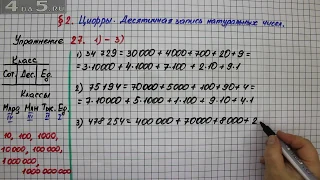 4 us 5.ru
§2. Цифры. Десятичная запись натуральных чисел.
Упражнение 27. 1) – 3)
Класс
Сот. Дес. Ед.
Классы
Млрд Млн Тыс. Ед.
10, 100, 1000,
10 000, 100 000,
1 000 000,
1 000 000 000
1) 34 729 = 30000 + 4000 + 700 + 20 + 9 =
= 3·10000 + 4·1000 + 7·100 + 2·10 + 9·1
2) 75 194 = 70000 + 5000 + 100 + 90 + 4 =
= 7·10000 + 5·1000 + 1·100 + 9·10 + 4·1
3) 478 254 = 400 000 + 70000 + 8000 + 2